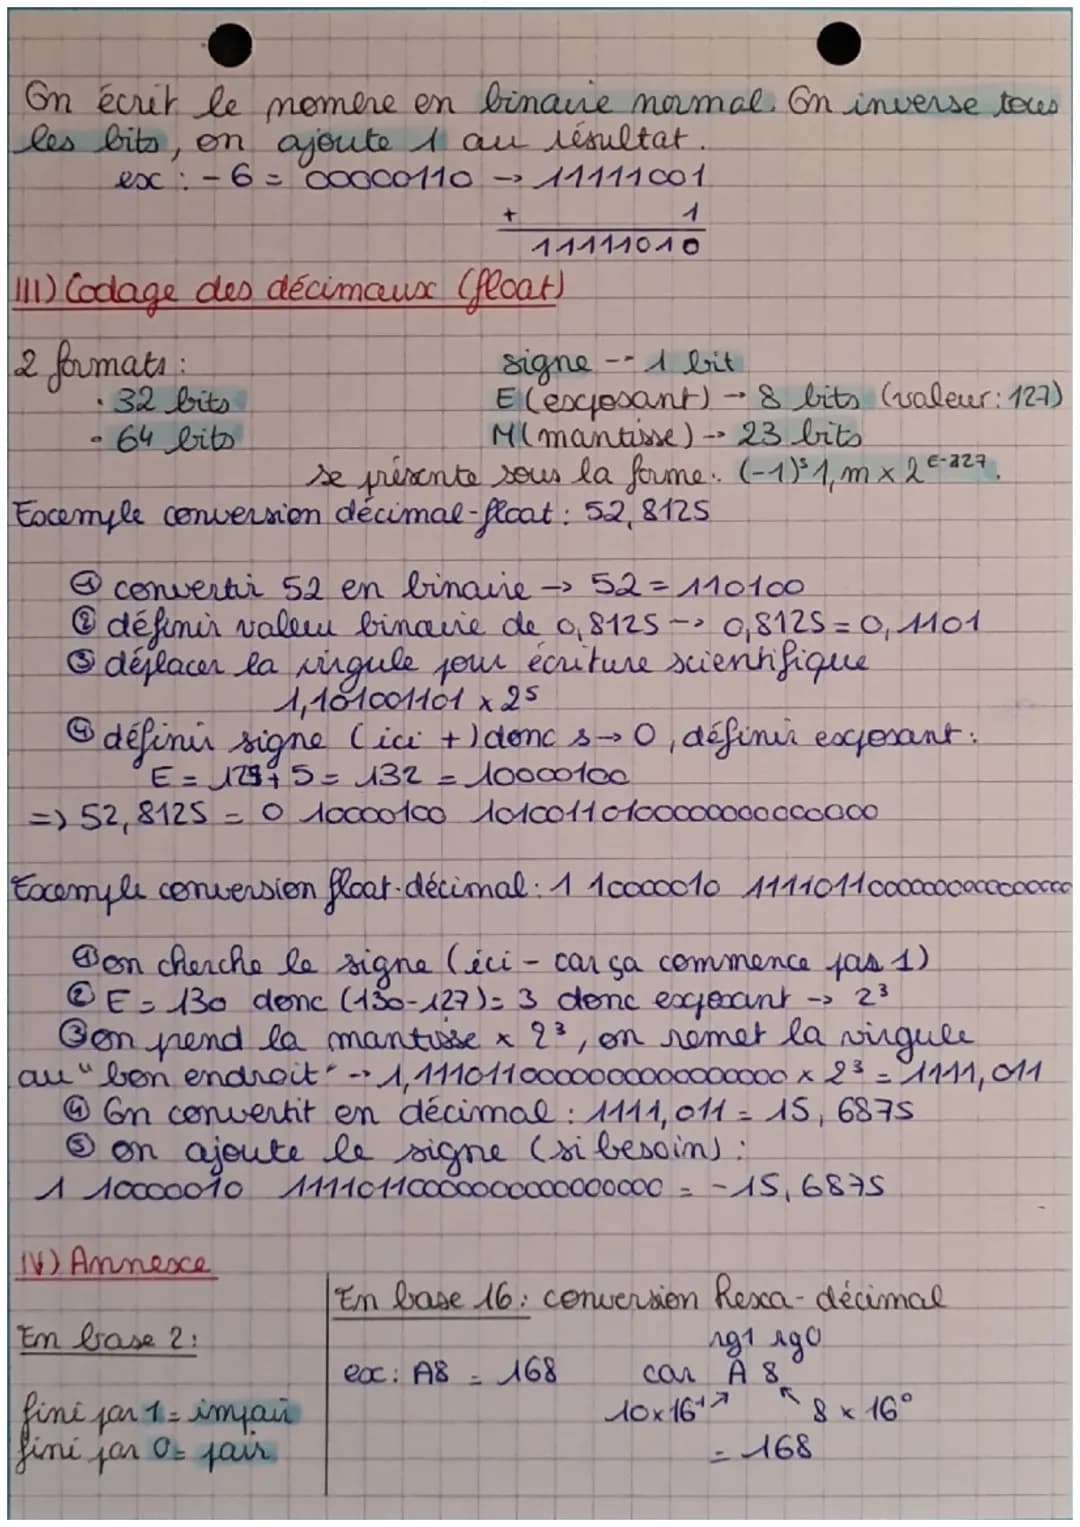 On écrit le nomère en binaire normal. On inverse tous
les bits, on ajoute 1 au résultat.
ex : -6 = 00000110 → 11111001
+ 1
11111010
III) Codage des décimaux (float)
2 formats :
• 32 bits
• 64 bits
signe -- 1 bit
E (exposant) → 8 bits (valeur: 127)
M (mantisse) → 23 bits
se présente sous la forme : (-1)ˢ 1, m x 2ᴱ⁻³²⁷.
Exemple conversion décimal-float : 52,8125
① convertir 52 en binaire → 52 = 110100
② définir valeur binaire de 0,8125 → 0,8125 = 0,1101
③ déplacer la virgule pour écriture scientifique
1,101001101 x 2⁵
④ définir signe (ici +) donc s → 0, définir exposant :
E = 127 + 5 = 132 = 10000100
=> 52,8125 = 0 10000100 10100110100000000000000
Exemple conversion float-décimal : 1 10000010 11110110000000000000000
① on cherche le signe (ici - car ça commence par 1)
② E = 130 donc (130-127) = 3 donc exposant → 2³
③ on prend la mantisse x 2³, on remet la virgule
au "bon endroit" → 1,11101100000000000000000 x 2³ = 1111,011
④ On convertit en décimal : 1111,011 = 15,6875
⑤ on ajoute le signe (si besoin) :
1 10000010 11110110000000000000000 = -15,6875
IV) Annexe
En base 2 :
fini par 1 = impair
fini par 0 = pair
En base 16 : conversion hexa-décimal
rg1 rg0
ex : A8 = 168 car A 8
10 x 16¹ ↗ ↖ 8 x 16⁰
= 168